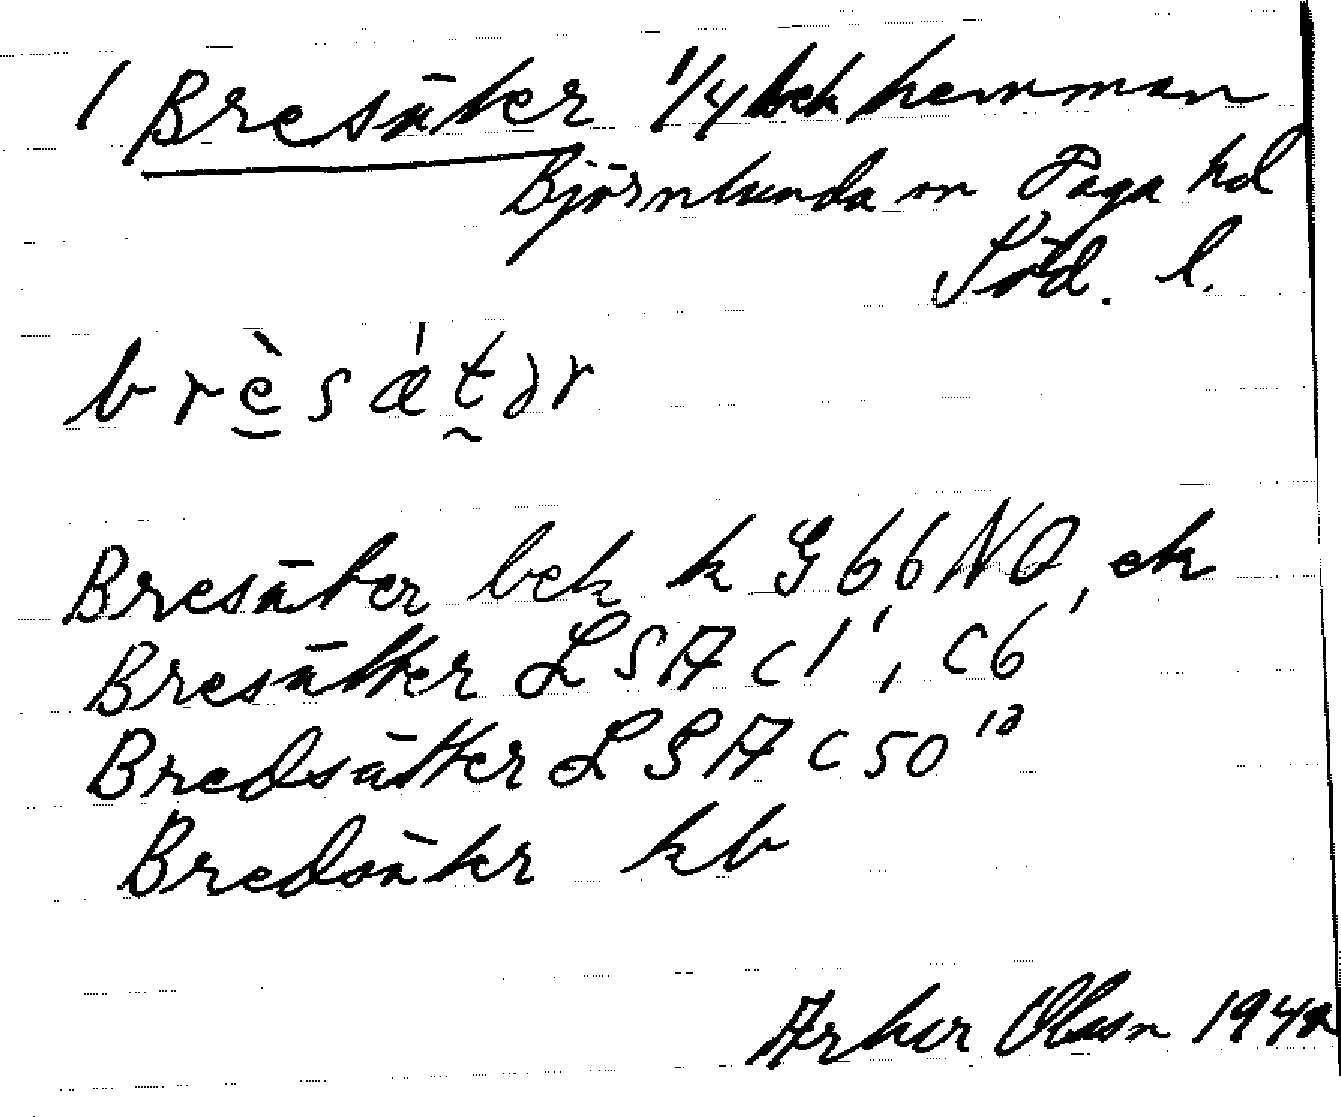 1 Bresäter 1/4 bek hemman
Björnlunda sn Daga hd
Söd. l.
brèsǽtər
Bresäter bek k G 66 NO, ek
Bresätter LSA c1¹, c6¹
Bredsätter LSA c50
Bredsäter kb
Arthur Olson 194